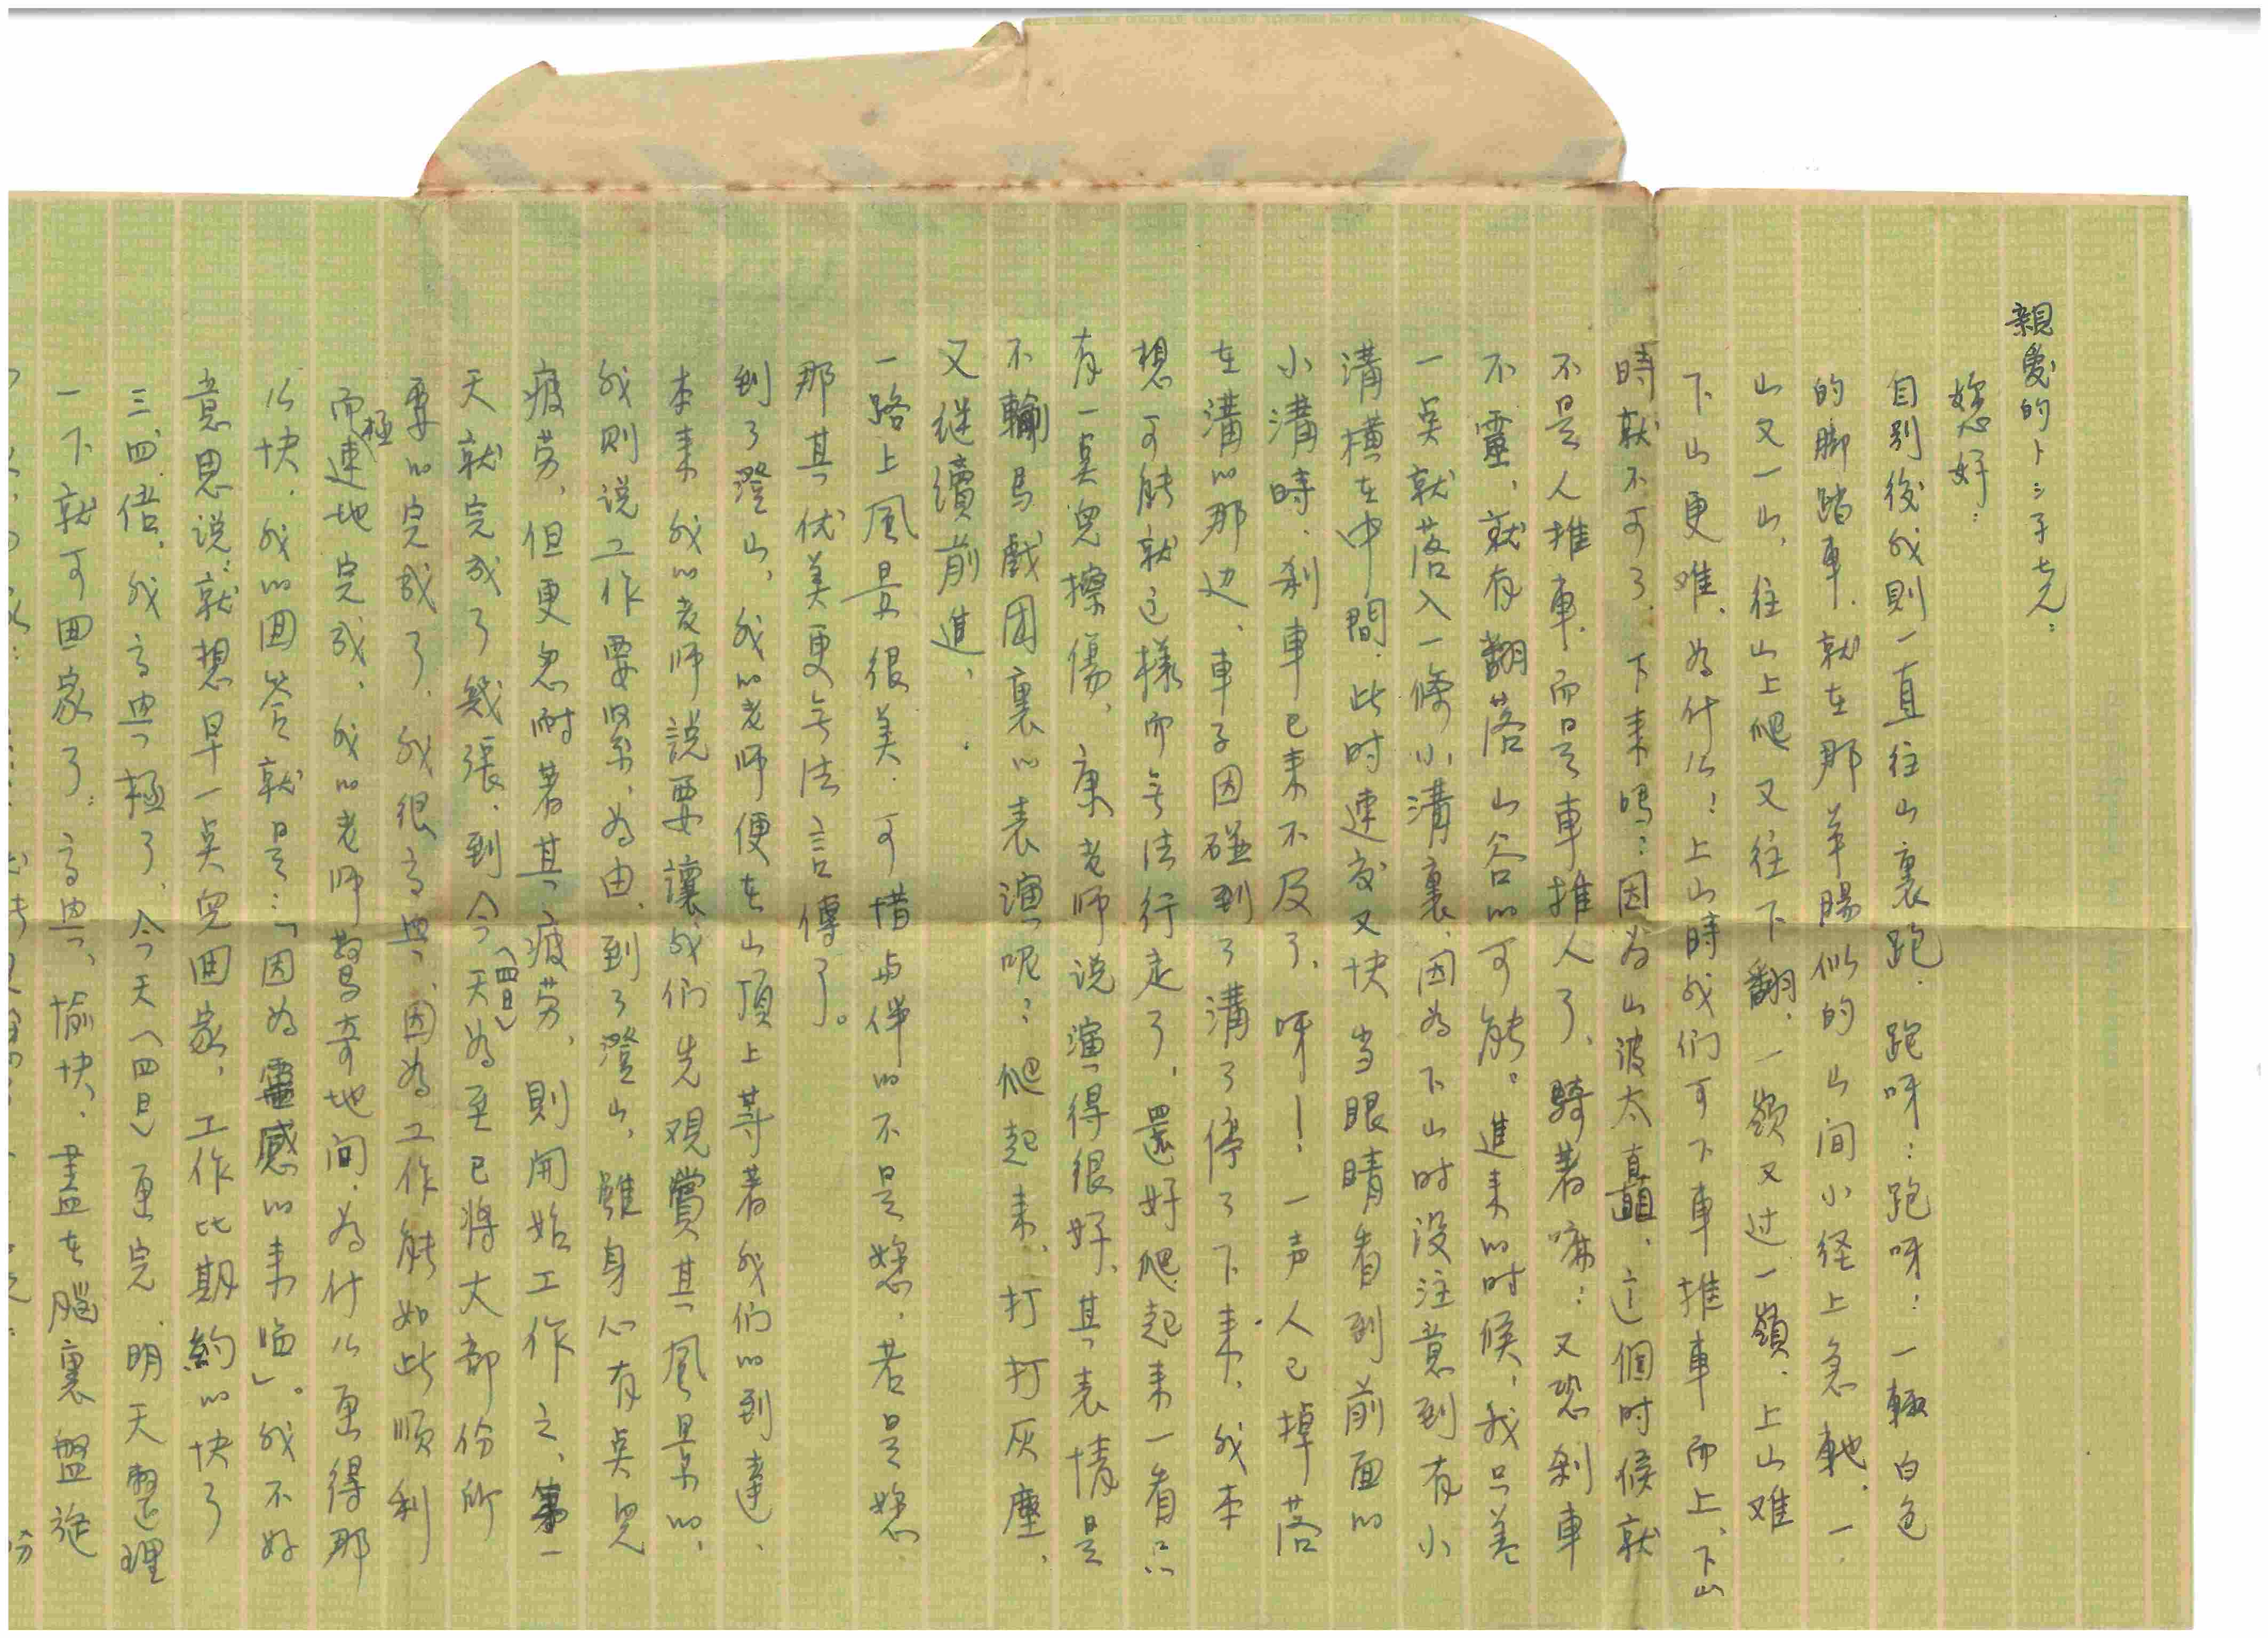 親愛的卜ミ子七兄：
您好：
自别後我則一直往山裏跑．跑呀：跑呀：一輛白色
的脚踏車．就在那羊腸似的山间小径上急馳．一
山又一山，往山上爬又往下翻．一嶺又过一嶺．上山难
下山更难．為什么！上山時我们可下車推車而上、下山
時就不可了．下来嗎：因為山波太巔，这個时候就
不是人推車．而是車推人了，騎着嘛：又恐剎車
不靈，就有翻落山谷的可能。進来的时候，我只差
一点就落入一條小溝裏，因為下山时没注意到有小
溝橫在中間．此时速度又快当眼睛看到前面的
小溝時．剎車已来不及了，呀——！一声人已掉落
在溝的那边、車子因碰到了溝了停了下来，我本
想可能就这樣而无法行走了，還好爬起来一看只
有一点兒擦傷，康老师说演得很好，其表情是
不輸馬戲团裏的表演呢：爬起来，打打打灰塵，
又继續前進，．
一路上風景很美．可惜与伴的不是您，若是您．
那其优美更无法言傳了。
到了澄山，我的老师便在山頂上等著我们的到達．
本来我的老师說要讓我们先观賞其風景的，
我則说工作要紧．為由．到了澄山，雖身心有点兒
疲劳，但更忍耐著其疲劳，則開始工作之，第一
天就完成了幾張．到今天（四日）為至已將大部份所
要的完成了．我很高興，因為工作能如此順利
而極速地完成，我的老师驚奇地问．為什么更得那
么快．我的回答就是：「因為靈感的来临」。我不好
意思说：就想早一点兒回家，工作比期約的快了
三．四．倍，我高興極了，今天（四日）更完．明天整理
一下就可回家了：高興，愉快，盡在腦裏盤旋